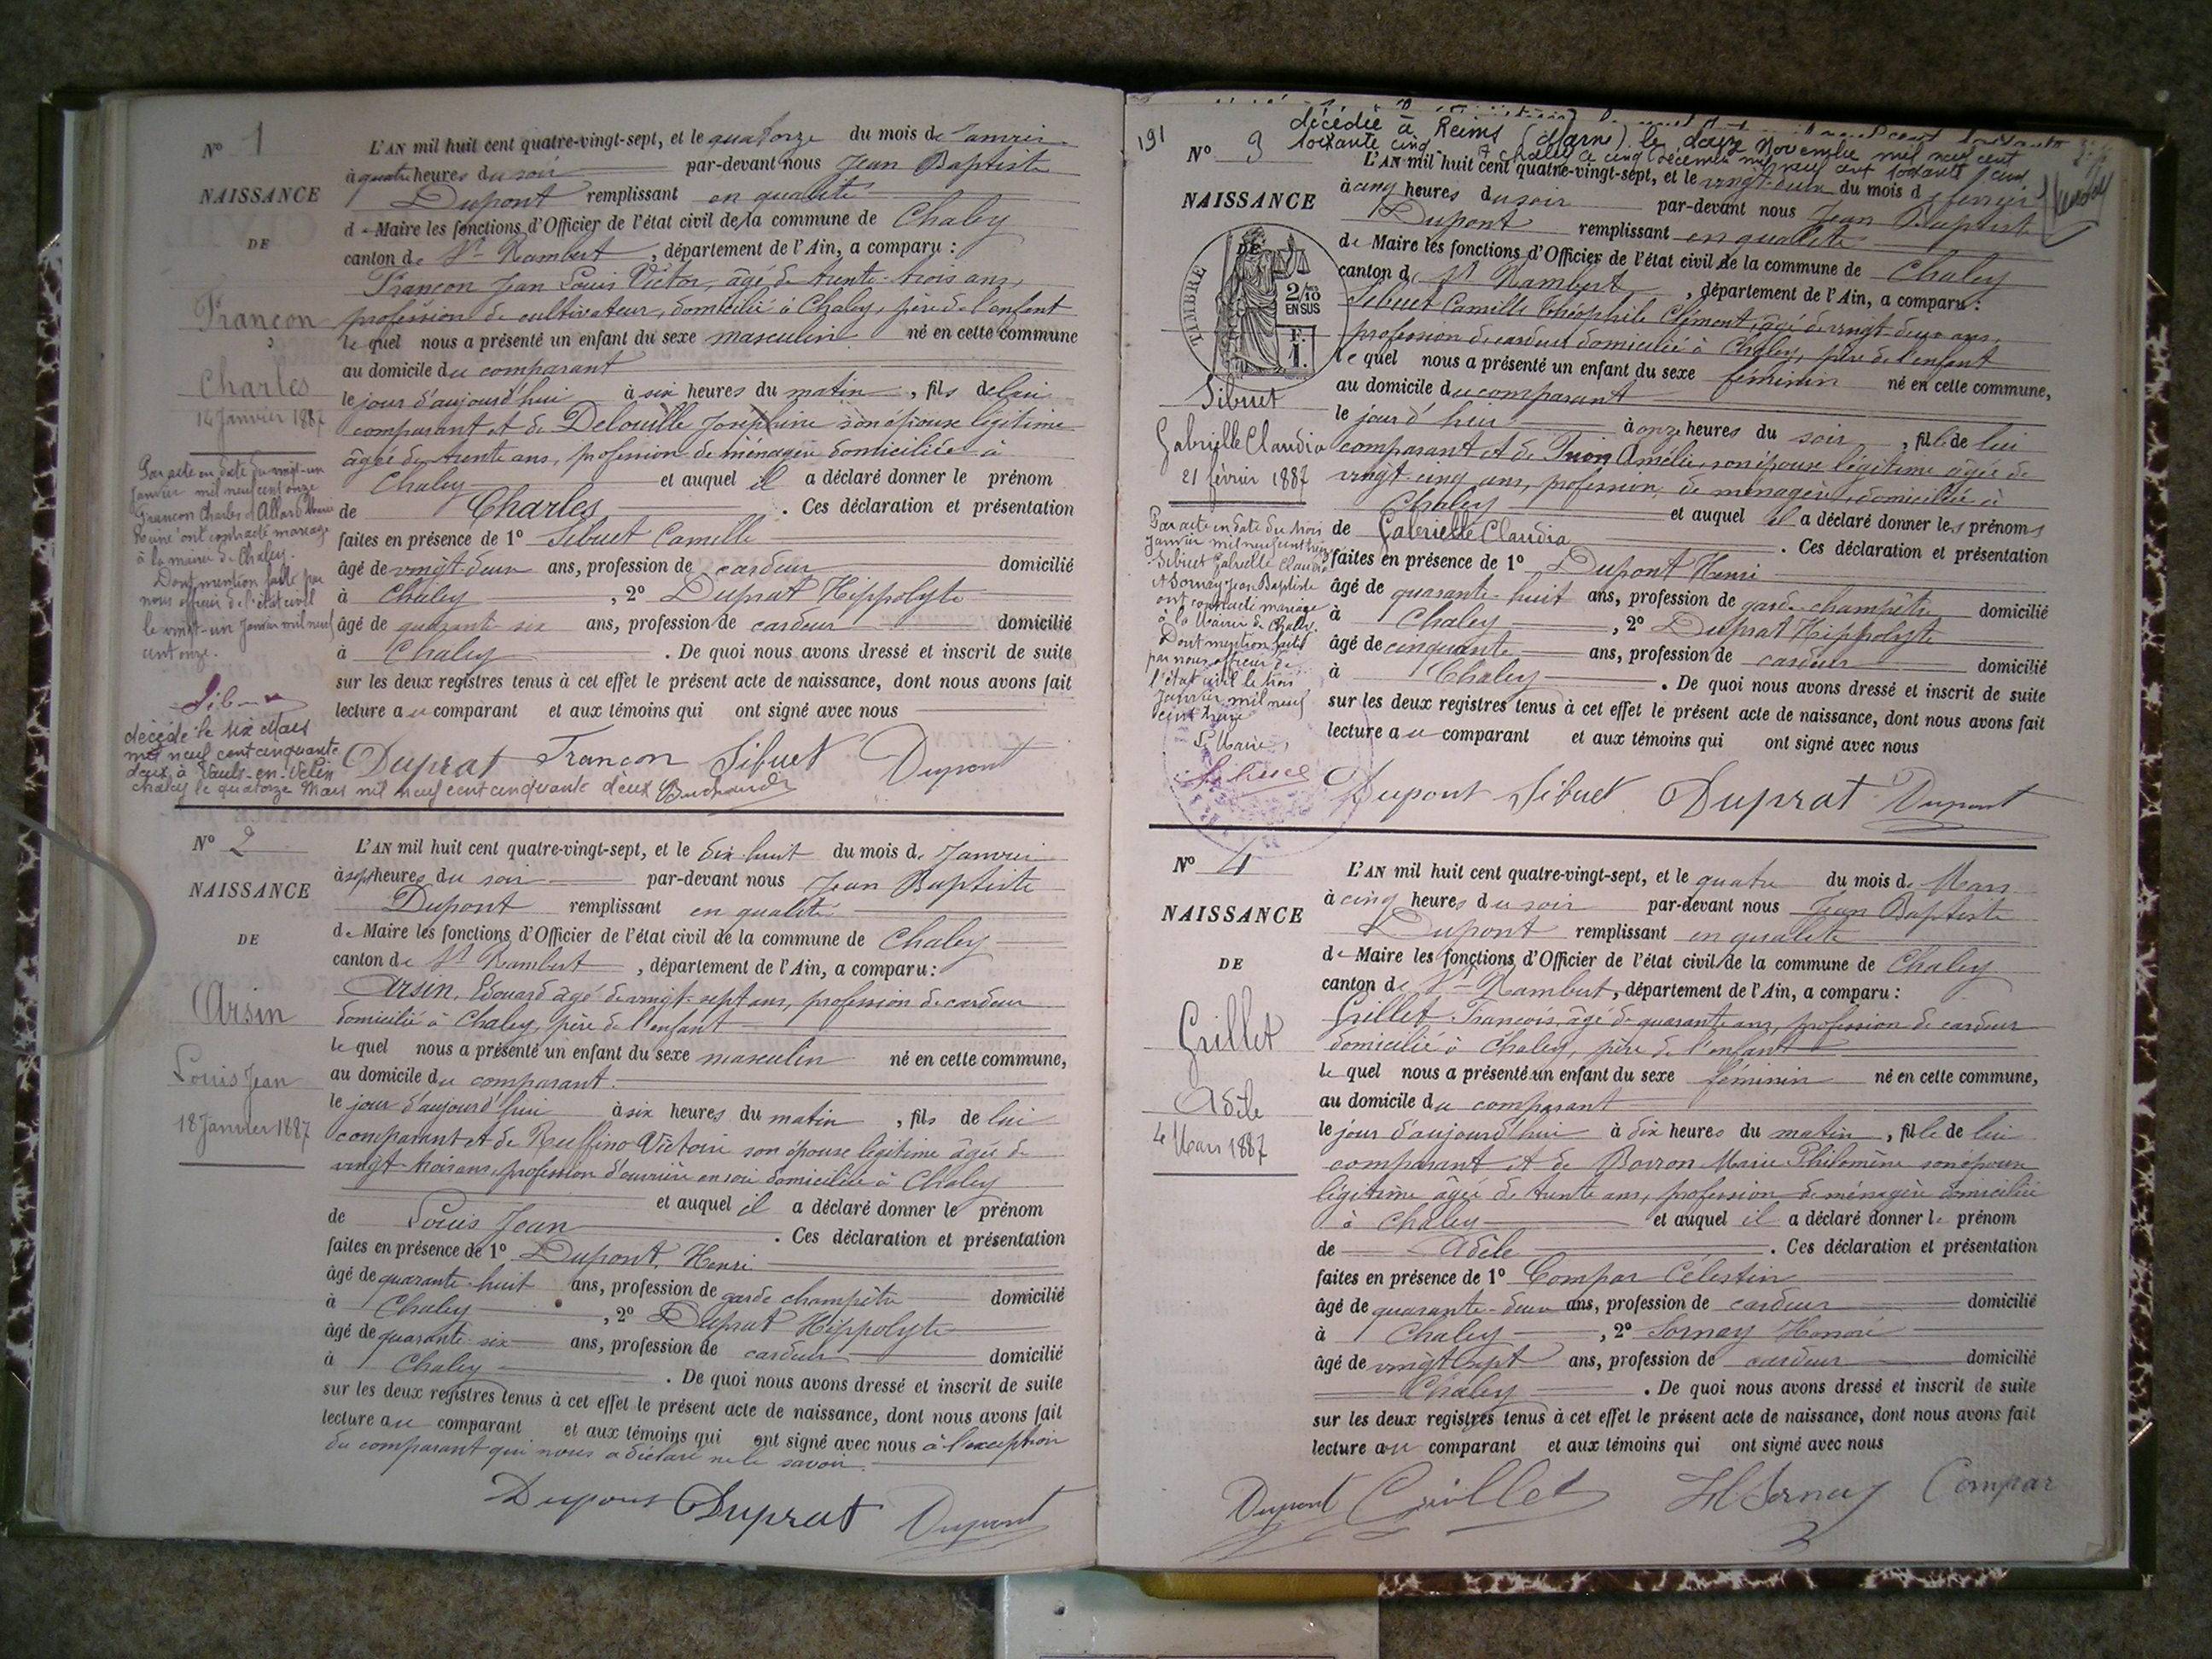 Nº 1
NAISSANCE
DE
Françon
Charles
14 Janvier 1887
Par acte en date du vingt-un
Janvier mil neuf cent onze
Françon Charles et Allard Marie
ont contracté mariage
à la mairie de Chaley.
Dont mention faite par
nous officier de l'état civil
le vingt-un Janvier mil neuf
cent onze.
Sibuet
décédé le six Mars
mil neuf cent cinquante
deux à Vaulx-en-Velin
Chaley le quatorze Mars mil neuf cent cinquante deux
L'AN mil huit cent quatre-vingt-sept, et le quatorze du mois de Janvier
à quatre heures du soir par-devant nous Jean Baptiste
Dupont remplissant en qualité
de Maire les fonctions d'Officier de l'état civil de la commune de Chaley
canton de St Rambert, département de l'Ain, a comparu :
Françon Jean Louis Victor, âgé de trente-trois ans,
profession de cultivateur, domicilié à Chaley, père de l'enfant
le quel nous a présenté un enfant du sexe masculin né en cette commune
au domicile du comparant
le jour d'aujourd'hui à six heures du matin, fils de lui
comparant et de Delouille Joséphine son épouse légitime
âgée de trente ans, profession de ménagère domiciliée à
Chaley et auquel il a déclaré donner le prénom
de Charles. Ces déclaration et présentation
faites en présence de 1º Sibuet Camille
âgé de vingt deux ans, profession de cardeur domicilié
à Chaley, 2º Duprat Hippolyte
âgé de quarante six ans, profession de cardeur domicilié
à Chaley. De quoi nous avons dressé et inscrit de suite
sur les deux registres tenus à cet effet le présent acte de naissance, dont nous avons fait
lecture au comparant et aux témoins qui ont signé avec nous
Duprat Francon Sibuet Dupont
Nº 2
NAISSANCE
DE
Arsin
Louis Jean
18 Janvier 1887
L'AN mil huit cent quatre-vingt-sept, et le dix-huit du mois de Janvier
à sept heures du soir par-devant nous Jean Baptiste
Dupont remplissant en qualité
de Maire les fonctions d'Officier de l'état civil de la commune de Chaley
canton de St Rambert, département de l'Ain, a comparu :
Arsin, Edouard âgé de vingt-sept ans, profession de cardeur
domicilié à Chaley, père de l'enfant
le quel nous a présenté un enfant du sexe masculin né en cette commune,
au domicile du comparant.
le jour d'aujourd'hui à six heures du matin, fils de lui
comparant et de Ruffino Victoire son épouse légitime âgée de
vingt-trois ans, profession d'ouvrière en soie domiciliée à Chaley
et auquel il a déclaré donner le prénom
de Louis Jean. Ces déclaration et présentation
faites en présence de 1º Dupont, Henri
âgé de quarante-huit ans, profession de garde champêtre domicilié
à Chaley, 2º Duprat Hippolyte
âgé de quarante-six ans, profession de cardeur domicilié
à Chaley. De quoi nous avons dressé et inscrit de suite
sur les deux registres tenus à cet effet le présent acte de naissance, dont nous avons fait
lecture au comparant et aux témoins qui ont signé avec nous à l'exception
du comparant qui nous a déclaré ne le savoir.
Dupont Duprat Dupont
191
décédée à Reims (Marne) le douze Novembre mil neuf cent
soixante cinq Chaley le cinq décembre mil neuf cent soixante cinq
Nº 3
NAISSANCE
DE
TIMBRE
2/10
EN SUS
F.
1.
Sibuet
Gabrielle Claudia
21 février 1887
Par acte en date du trois
Janvier mil neuf cent treize
Sibuet Gabrielle Claudia
et Sornay Jean Baptiste
ont contracté mariage
à la Mairie de Chaley.
Dont mention faite
par nous officier de
l'état civil le trois
Janvier mil neuf
cent treize
Le Maire,
Sibuet
L'AN mil huit cent quatre-vingt-sept, et le vingt-deux du mois de février
à cinq heures du soir par-devant nous Jean Baptiste
Dupont remplissant en qualité
de Maire les fonctions d'Officier de l'état civil de la commune de Chaley
canton de St Rambert, département de l'Ain, a comparu :
Sibuet Camille Théophile Clément, âgé de vingt-deux ans,
profession de cardeur domicilié à Chaley, père de l'enfant
le quel nous a présenté un enfant du sexe féminin né en cette commune,
au domicile du comparant
le jour d'hier à onze heures du soir, fille de lui
comparant et de Juon Amélie, son épouse légitime âgée de
vingt-cinq ans, profession de ménagère, domiciliée à
Chaley et auquel il a déclaré donner les prénoms
de Gabrielle Claudia. Ces déclaration et présentation
faites en présence de 1º Dupont Henri
âgé de quarante-huit ans, profession de garde-champêtre domicilié
à Chaley, 2º Duprat Hippolyte
âgé de cinquante ans, profession de cardeur domicilié
à Chaley. De quoi nous avons dressé et inscrit de suite
sur les deux registres tenus à cet effet le présent acte de naissance, dont nous avons fait
lecture au comparant et aux témoins qui ont signé avec nous
Dupont Sibuet Duprat Dupont
Nº 4
NAISSANCE
DE
Grillet
Adèle
4 Mars 1887
L'AN mil huit cent quatre-vingt-sept, et le quatre du mois de Mars
à cinq heures du soir par-devant nous Jean Baptiste
Dupont remplissant en qualité
de Maire les fonctions d'Officier de l'état civil de la commune de Chaley
canton de St Rambert, département de l'Ain, a comparu :
Grillet François, âgé de quarante ans, profession de cardeur
domicilié à Chaley, père de l'enfant
le quel nous a présenté un enfant du sexe féminin né en cette commune,
au domicile du comparant
le jour d'aujourd'hui à dix heures du matin, fille de lui
comparant et de Borron Marie Philomène son épouse
légitime âgée de trente ans, profession de ménagère domiciliée
à Chaley et auquel il a déclaré donner le prénom
de Adèle. Ces déclaration et présentation
faites en présence de 1º Compar Célestin
âgé de quarante-deux ans, profession de cardeur domicilié
à Chaley, 2º Sornay Honoré
âgé de vingt sept ans, profession de cardeur domicilié
Chaley. De quoi nous avons dressé et inscrit de suite
sur les deux registres tenus à cet effet le présent acte de naissance, dont nous avons fait
lecture au comparant et aux témoins qui ont signé avec nous
Dupont Grillet H Sornay Compar